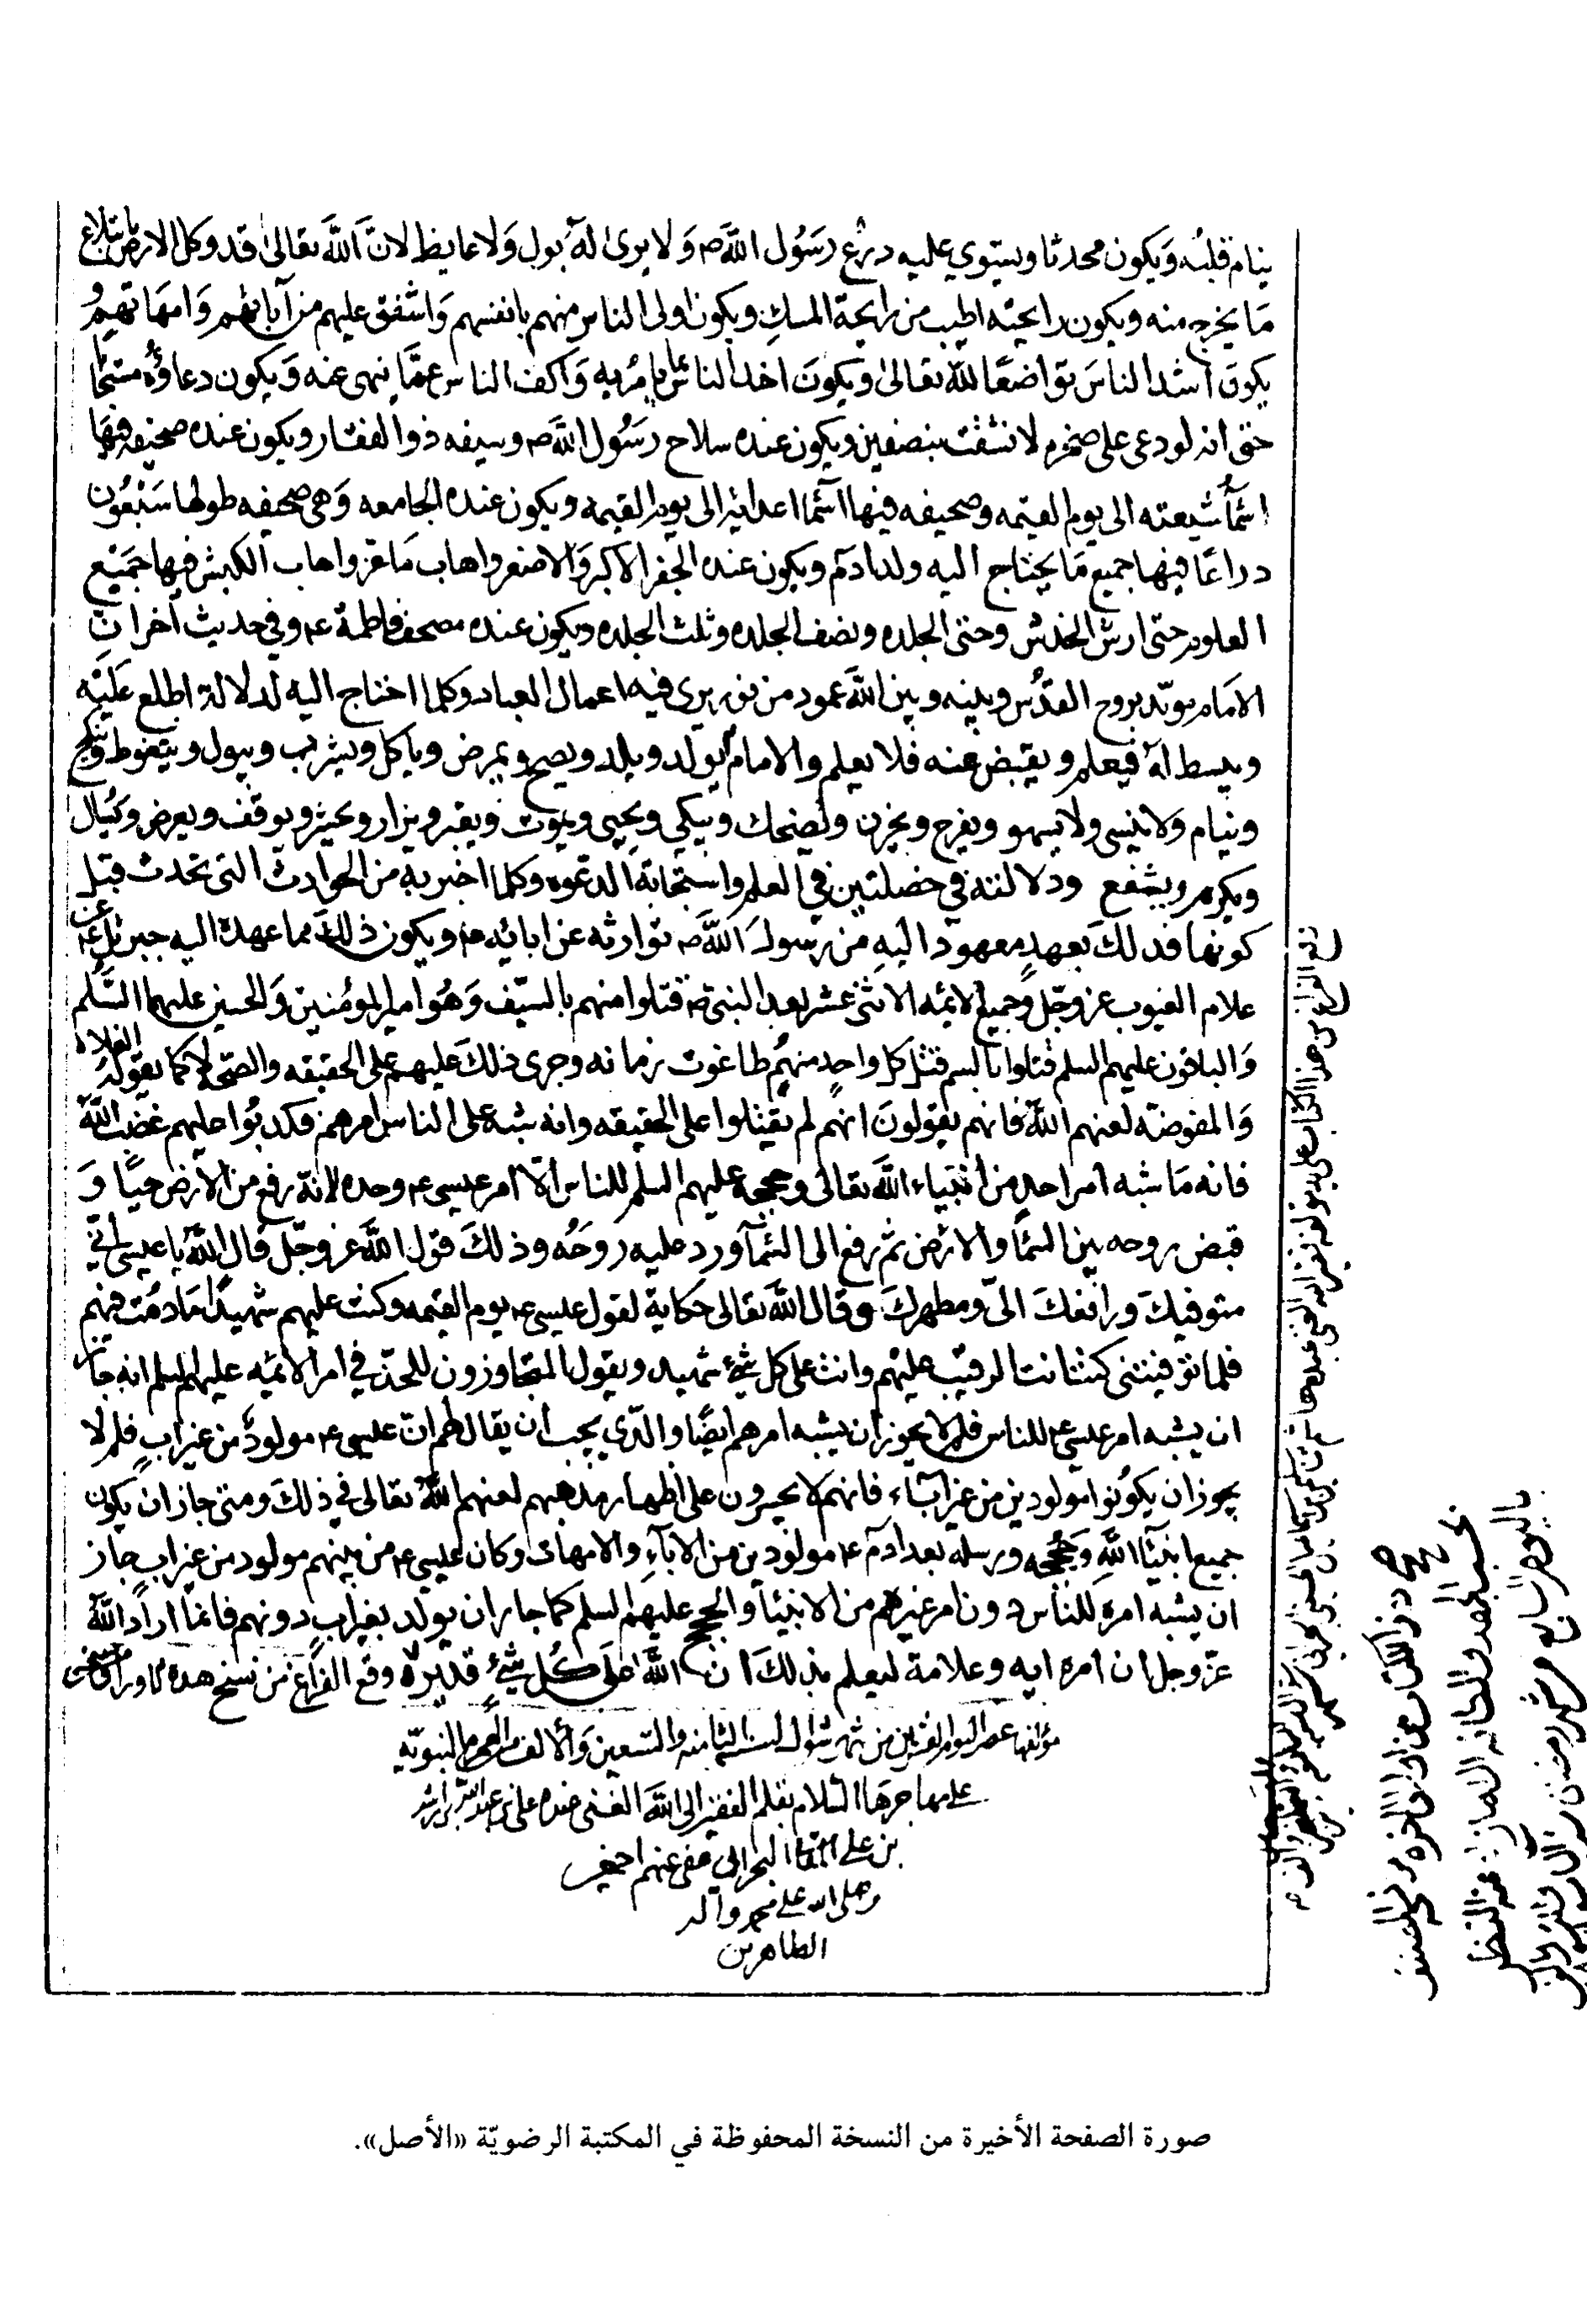 ينام قلبه وَيكون محدثا ويستوي عليه درع رسَوُل اللَّه ص وَلا يرى له بول وَلا غايظ لانّ اللَّه تعالى قد وكل الارض بابتلاع
مَا يخرج منه ويكون رايحته اطيب من رايحة المسك ويكون اولى الناس منهم بانفسهم وَاشفق عليهم من آبائهم وَامهاتهم وُ
يكون اشد الناسَ تواضعًا للّه تعالى ويكونَ اخذ الناس بما يامُر به وَاكف الناس عمَّا ينهى عنه وَيكون دعاؤُه مستجابا
حتى انه لو دعى على صخره لانشقت بنصفين ويكون عنده سلاح رسَوُل اللَّه ص وسيفه ذو الفقار ويكون عنده صحيفه فيها
اسمآ شيعته الى يوم القيمه وصحيفه فيها اسمآ اعدائه الى يوم القيمه ويكون عنده الجامعه وَهي صحيفه طولها سَبْعُون
ذراعًا فيها جميع مَا يحتاج اليه ولد ادَم ويكون عنده الجفر الاكبر وَالاصغر واهاب مَاعز واهاب الكبش فيها جمَيْع
العلوم حتى ارش الخدش وحتى الجلده ونصف الجلده وثلث الجلده ويكون عنده مصحف فاطمة ع وفي حديث آخر انّ
الامَام مويّد بروح القدُس وبينه وبين اللَّه عمود من نور يرى فيه اعمال العباد وكلما احتاج اليه لدلالة اطلع عَليْه
ويبسط له فيعلم ويقبض عنه فلا يعلم والامام يولد ويلد ويصح ويمرض وياكل ويشرب ويبول ويتغوط وينكح
وينام ولا ينسى ولا يسهو ويفرح ويحزن ويضحك ويبكي ويحيى ويموت ويقبر ويزار ويحشر ويوقف ويعرض وَيُسال
ويكرم ويشفع ودلالته في خصلتين في العلم واستجابة الدعوه وكلما اخبر به من الحوادث التى تحدث قبل
كونها فذلكَ بعهدٍ معهود اليهِ من رسول اللَّه ص توارثه عن ابائه ع ويكون ذلكَ مما عهدهُ اليه جبرئيل ع عن
علام الغيوب عز وجّل وجميع الائمه الاثنى عشر بعد النبي ص قتلوا منهم بالسيّف وَهُو امير المومُنين وَالحسين عليهما السَّلم
وَالباقون عليهم السلم قتلوا بالسم قتل كل واحدٍ منهُم طاغوت زمانه وجرى ذلكَ عليهم على الحقيقه والصّحه لا كما يقوله الغلاه
وَالمفوضه لعنهم اللّه فانهم يقولونَ انهم لم يقتلوا على الحقيقه وانه شبه على الناس امرهم فكذبُوا عليهم غضب اللّه
فانه مَا شبه امر احدٍ من انبياء اللَّه تعالى وحججه عليهم السلم للناس الّا امر عيسى ع وحده لانه رفع من الارض حيًّا وَ
قبض روحه بين السمآ والارض ثم رفع الى السمآ ورد عليه روحُه وذلكَ قول اللَّه عز وجّل قال اللّه يا عيسى انّي
متوفيكَ ورافعكَ اليّ ومطهركَ وقال اللَّه تعالى حكاية لقول عيسى ع يوم القيمه وكنت عليهم شهيدًا مَا دمُت فيهم
فلما توفيتنى كنت انت الرقيب عليهم وانت على كل شيء شهيد ويقول المتجاوزون للحدّ في امر الائمه عليهم السلم انه جاز
ان يشبه امر عيسى ع للناس فلم لا يجوز ان يشبه امرهم ايضًا والذّي يجب ان يقال لهم انّ عيسى ع مولودٌ من غير ابٍ فلم لا
يجوز ان يكوُنوا مولودين من غير آباء فانهم لا يجسرون على اظهار مذهبهم لعنهم اللّه تعالى في ذلكَ ومتى جاز ان يكون
جميع انبيآ اللّهِ وَحججه ورسله بعد ادَم ع مولودين من الابآءِ والامهات وكان عيسى ع من بينهم مولود من غير ابٍ جاز
ان يشبه امره للناس دون امر غيرهم من الانبيآ والحجج عليهم السلم كما جاز ان يولد بغير ابٍ دونهم فانما ارادَ اللّه
عزّ وجل ان امره ايه وعلامة ليعلم بذلكَ ان اللّه على كُل شيءٍ قدير وقع الفراغ من نسخ هذه الاوراق من نسخه
مؤلفها عصر اليوم العشرين من شهر شوال لسنه الثامنه والتسعين وَالالف من الهجره النبويّه
على مهاجرهَا السلام بقلم الفقير الى اللَّه الغنى عبده علي بن عبد اللّه بن راشد
بن علي البحراني عفى عنهم اجمعين
وصلى الله على محمد وآله
الطاهرين
صورة الصفحة الأخيرة من النسخة المحفوظة في المكتبة الرضويّة «الأصل».